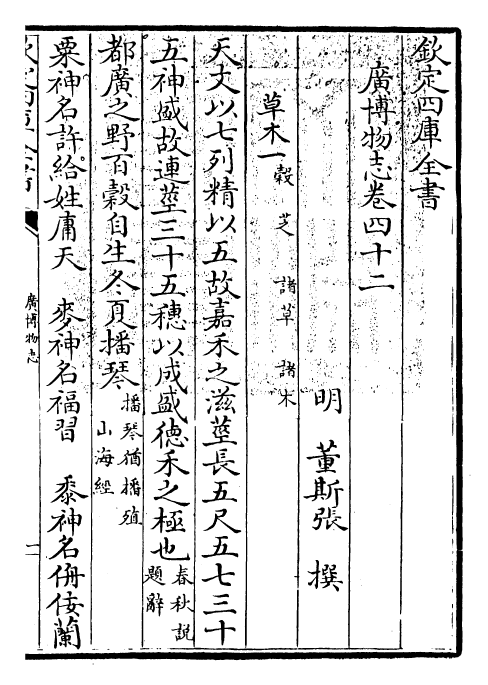 欽定四庫全書
廣博物志卷四十二
明 董斯張 撰
草木一 穀 芝 諸草 諸木
天文以七列精以五故嘉禾之滋莖長五尺五七三十
五神盛故連莖三十五穗以成盛德禾之極也 春秋説題辭
都廣之野百穀自生冬夏播琴 播琴猶播殖 山海經
粟神名許給姓庸天 麥神名福習 黍神名倂倭蘭
廣博物志
一